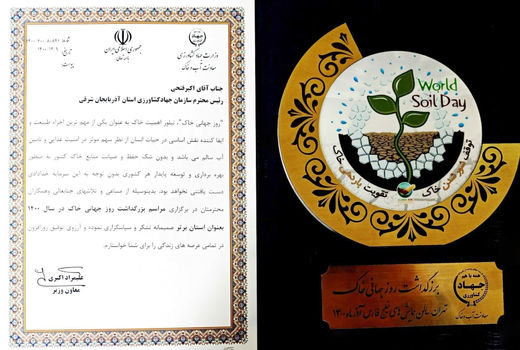 جمهوری اسلامی ایران
وزارت جهاد کشاورزی
معاونت آب و خاک
شماره
تاریخ
پیوست
جناب آقای اکبرفتحی
رئیس محترم سازمان جهادکشاورزی استان آذربایجان شرقی
"روز جهانی خاک"، تبلور اهمیت خاک به عنوان یکی از مهم ترین اجزاء طبیعت و
ایفا کننده نقش اساسی در حیات انسان از نظر سهم موثر در امنیت غذایی و تامین
آب سالم می باشد و بدون شک حفظ و صیانت منابع خاک کشور به منظور
بهره برداری و توسعه پایدار هر کشوری بدون توجه به این سرمایه خدادادی
دست یافتنی نخواهد بود. بدینوسیله از مساعی و تلاشهای جنابعالی وهمکاران
محترمتان در برگزاری مراسم بزرگداشت روز جهانی خاک در سال ۱۴۰۰
بعنوان استان برتر صمیمانه تشکر و سپاسگزاری نموده و آرزوی توفیق روزافزون
در تمامی عرصه های زندگی را برای شما خواستارم.
علیمراد اکبری
معاون وزیر
World
Soil Day
توقف شور شدن خاک
تقویت باردهی خاک
جهاد
کشاورزی
معاونت آب و خاک
بزرگداشت روز جهانی خاک
تهران سالن همایش های خلیج فارس آذرماه ۱۴۰۰